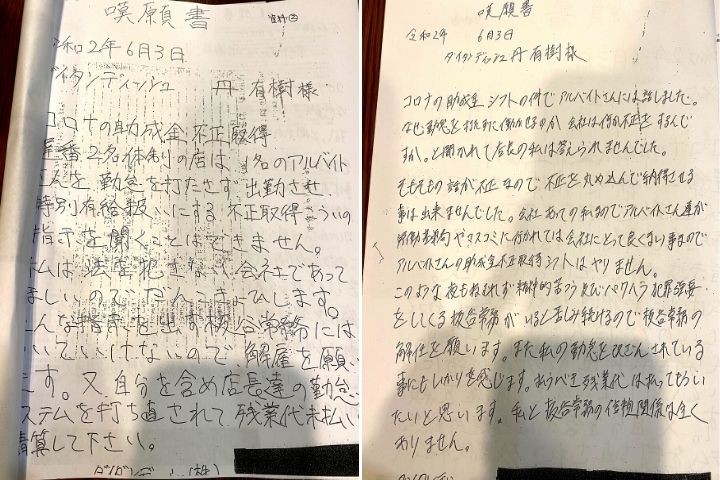 嘆願書
資料②
令和2年6月3日
ダイタンディッシュ 丹 有樹様
コロナの助成金不正取得
定番2名体制の店は1名のアルバイト
さんを勤怠を打たさず出勤させ
特別有給扱いにする不正取得ういの
指示を聞くことはできません。
私は法を犯さない会社であって
ほしいのでだんこきょひします。
こんな指示を出す板谷常務には
いていけないので解雇を願い
ます。又、自分を含め店長達の勤怠
システムを打ち直されて残業代未払い
清算して下さい。
嘆願書
令和2年 6月3日
ダイタンディッシュ 丹 有樹様
コロナの助成金シフトの件でアルバイトさんには話しました。
なぜ勤怠を打たずに働かせるのか会社は何か不正をするんで
すか。と聞かれて店長の私は答えられませんでした。
そもそもの話が不正なので不正を丸め込んで納得させる
事は出来ませんでした。会社あっての私なのでアルバイトさん達が
労働基準局やマスコミに行かれては会社にとって良くない事なので
アルバイトさんの助成金不正取得シフトはやりません。
このような夜もねむれず精神的苦つう及びパワハラ犯罪強要
をしてくる板谷常務がいると苦しみ続けるので板谷常務の
解任を願います。また私の勤怠を改ざんされている
事にもいかりを感じます。払うべき残業代は払ってもらい
たいと思います。私と板谷常務の信頼関係は全く
ありません。